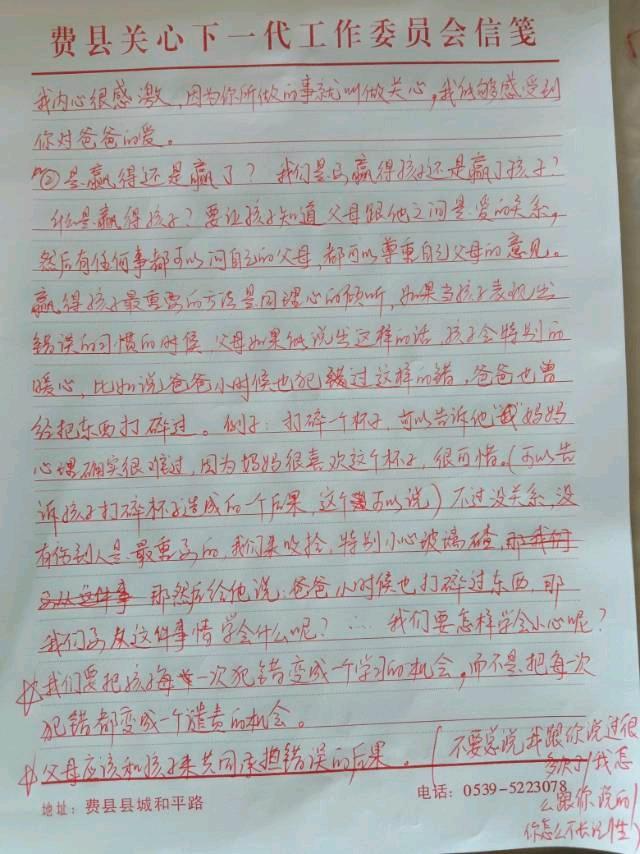 费县关心下一代工作委员会信笺
我内心很感激,因为你所做的事就叫做关心,我能够感受到
你对爸爸的爱。
②是赢得还是赢了?我们是要赢得孩子还是赢了孩子?
什么是赢得孩子?要让孩子知道父母跟他之间是爱的关系,
然后有任何事都可以问自己的父母,都可以尊重自己父母的意见。
赢得孩子最重要的方法是同理心的倾听,如果当孩子表现出
错误的习惯的时候,父母如果能说出这样的话,孩子会特别的
暖心,比如说,爸爸小时候也犯过这样的错,爸爸也曾
经把东西打碎过。例子:打碎一个杯子,可以告诉他"妈妈
心里确实很难过,因为妈妈很喜欢这个杯子,很可惜。(可以告
诉孩子打碎杯子造成的一个后果,这个可以说)不过没关系,没
有伤到人是最重要的,我们来收拾,特别小心玻璃碴,那我们
要从这件事 那然后给他说:爸爸小时候也打碎过东西,那
我们要从这件事情学会什么呢?∴ 我们要怎样学会小心呢?
我们要把孩每一次犯错变成一个学习的机会,而不是把每一次
犯错都变成一个谴责的机会。
父母应该和孩子来共同承担错误的后果。(不要总说我跟你说过很
多次了/我怎
么跟你说的/
你怎么不长记性)
地址:费县县城和平路
电话:0539-5223078